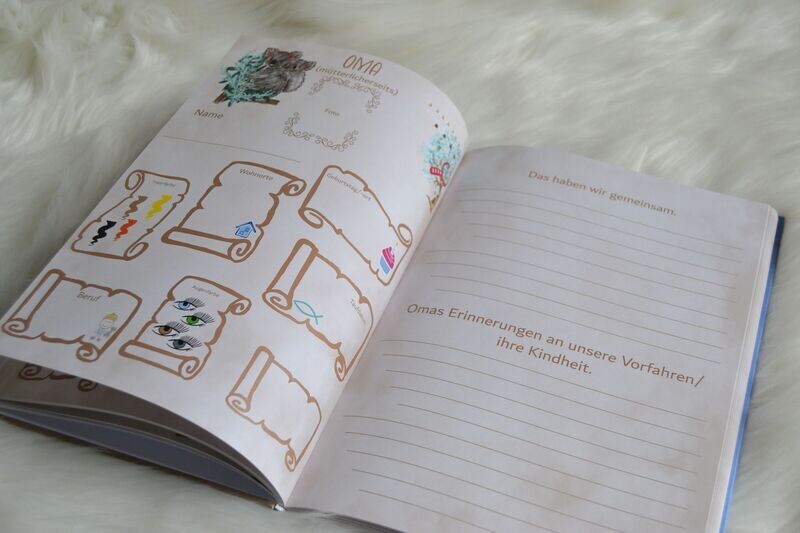 OMA
(mütterlicherseits)
Foto
Name
Haarfarbe
Wohnorte
Geburtstag/-ort
Beruf
Augenfarbe
Taufdatum
Das haben wir gemeinsam.
Omas Erinnerungen an unsere Vorfahren/
ihre Kindheit.